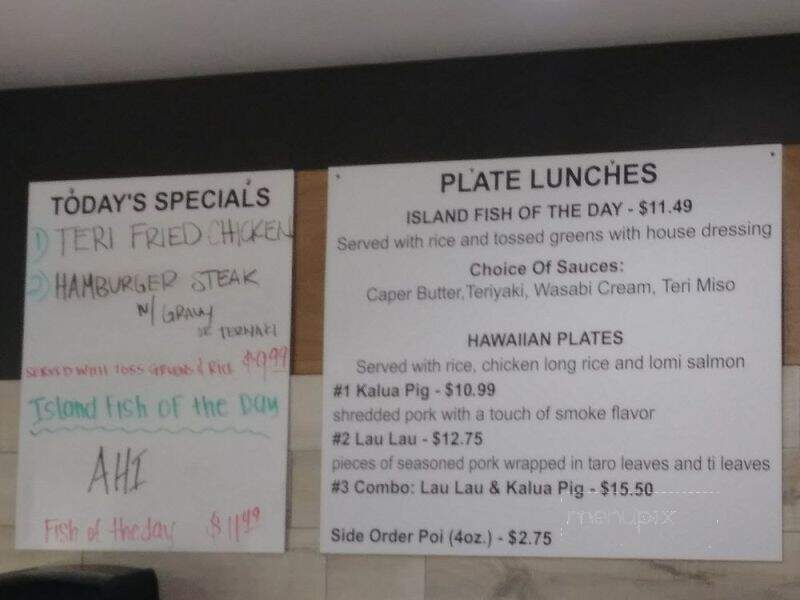 TODAY'S SPECIALS
1) TERI FRIED CHICKEN
2) HAMBURGER STEAK
W/ GRAVY
OR TERIYAKI
SERVED WITH TOSS GREENS & RICE $9.99
Island Fish of the Day
AHI
Fish of the day $11.49
PLATE LUNCHES
ISLAND FISH OF THE DAY - $11.49
Served with rice and tossed greens with house dressing
Choice Of Sauces:
Caper Butter,Teriyaki, Wasabi Cream, Teri Miso
HAWAIIAN PLATES
Served with rice, chicken long rice and lomi salmon
#1 Kalua Pig - $10.99
shredded pork with a touch of smoke flavor
#2 Lau Lau - $12.75
pieces of seasoned pork wrapped in taro leaves and ti leaves
#3 Combo: Lau Lau & Kalua Pig - $15.50
menupix
Side Order Poi (4oz.) - $2.75